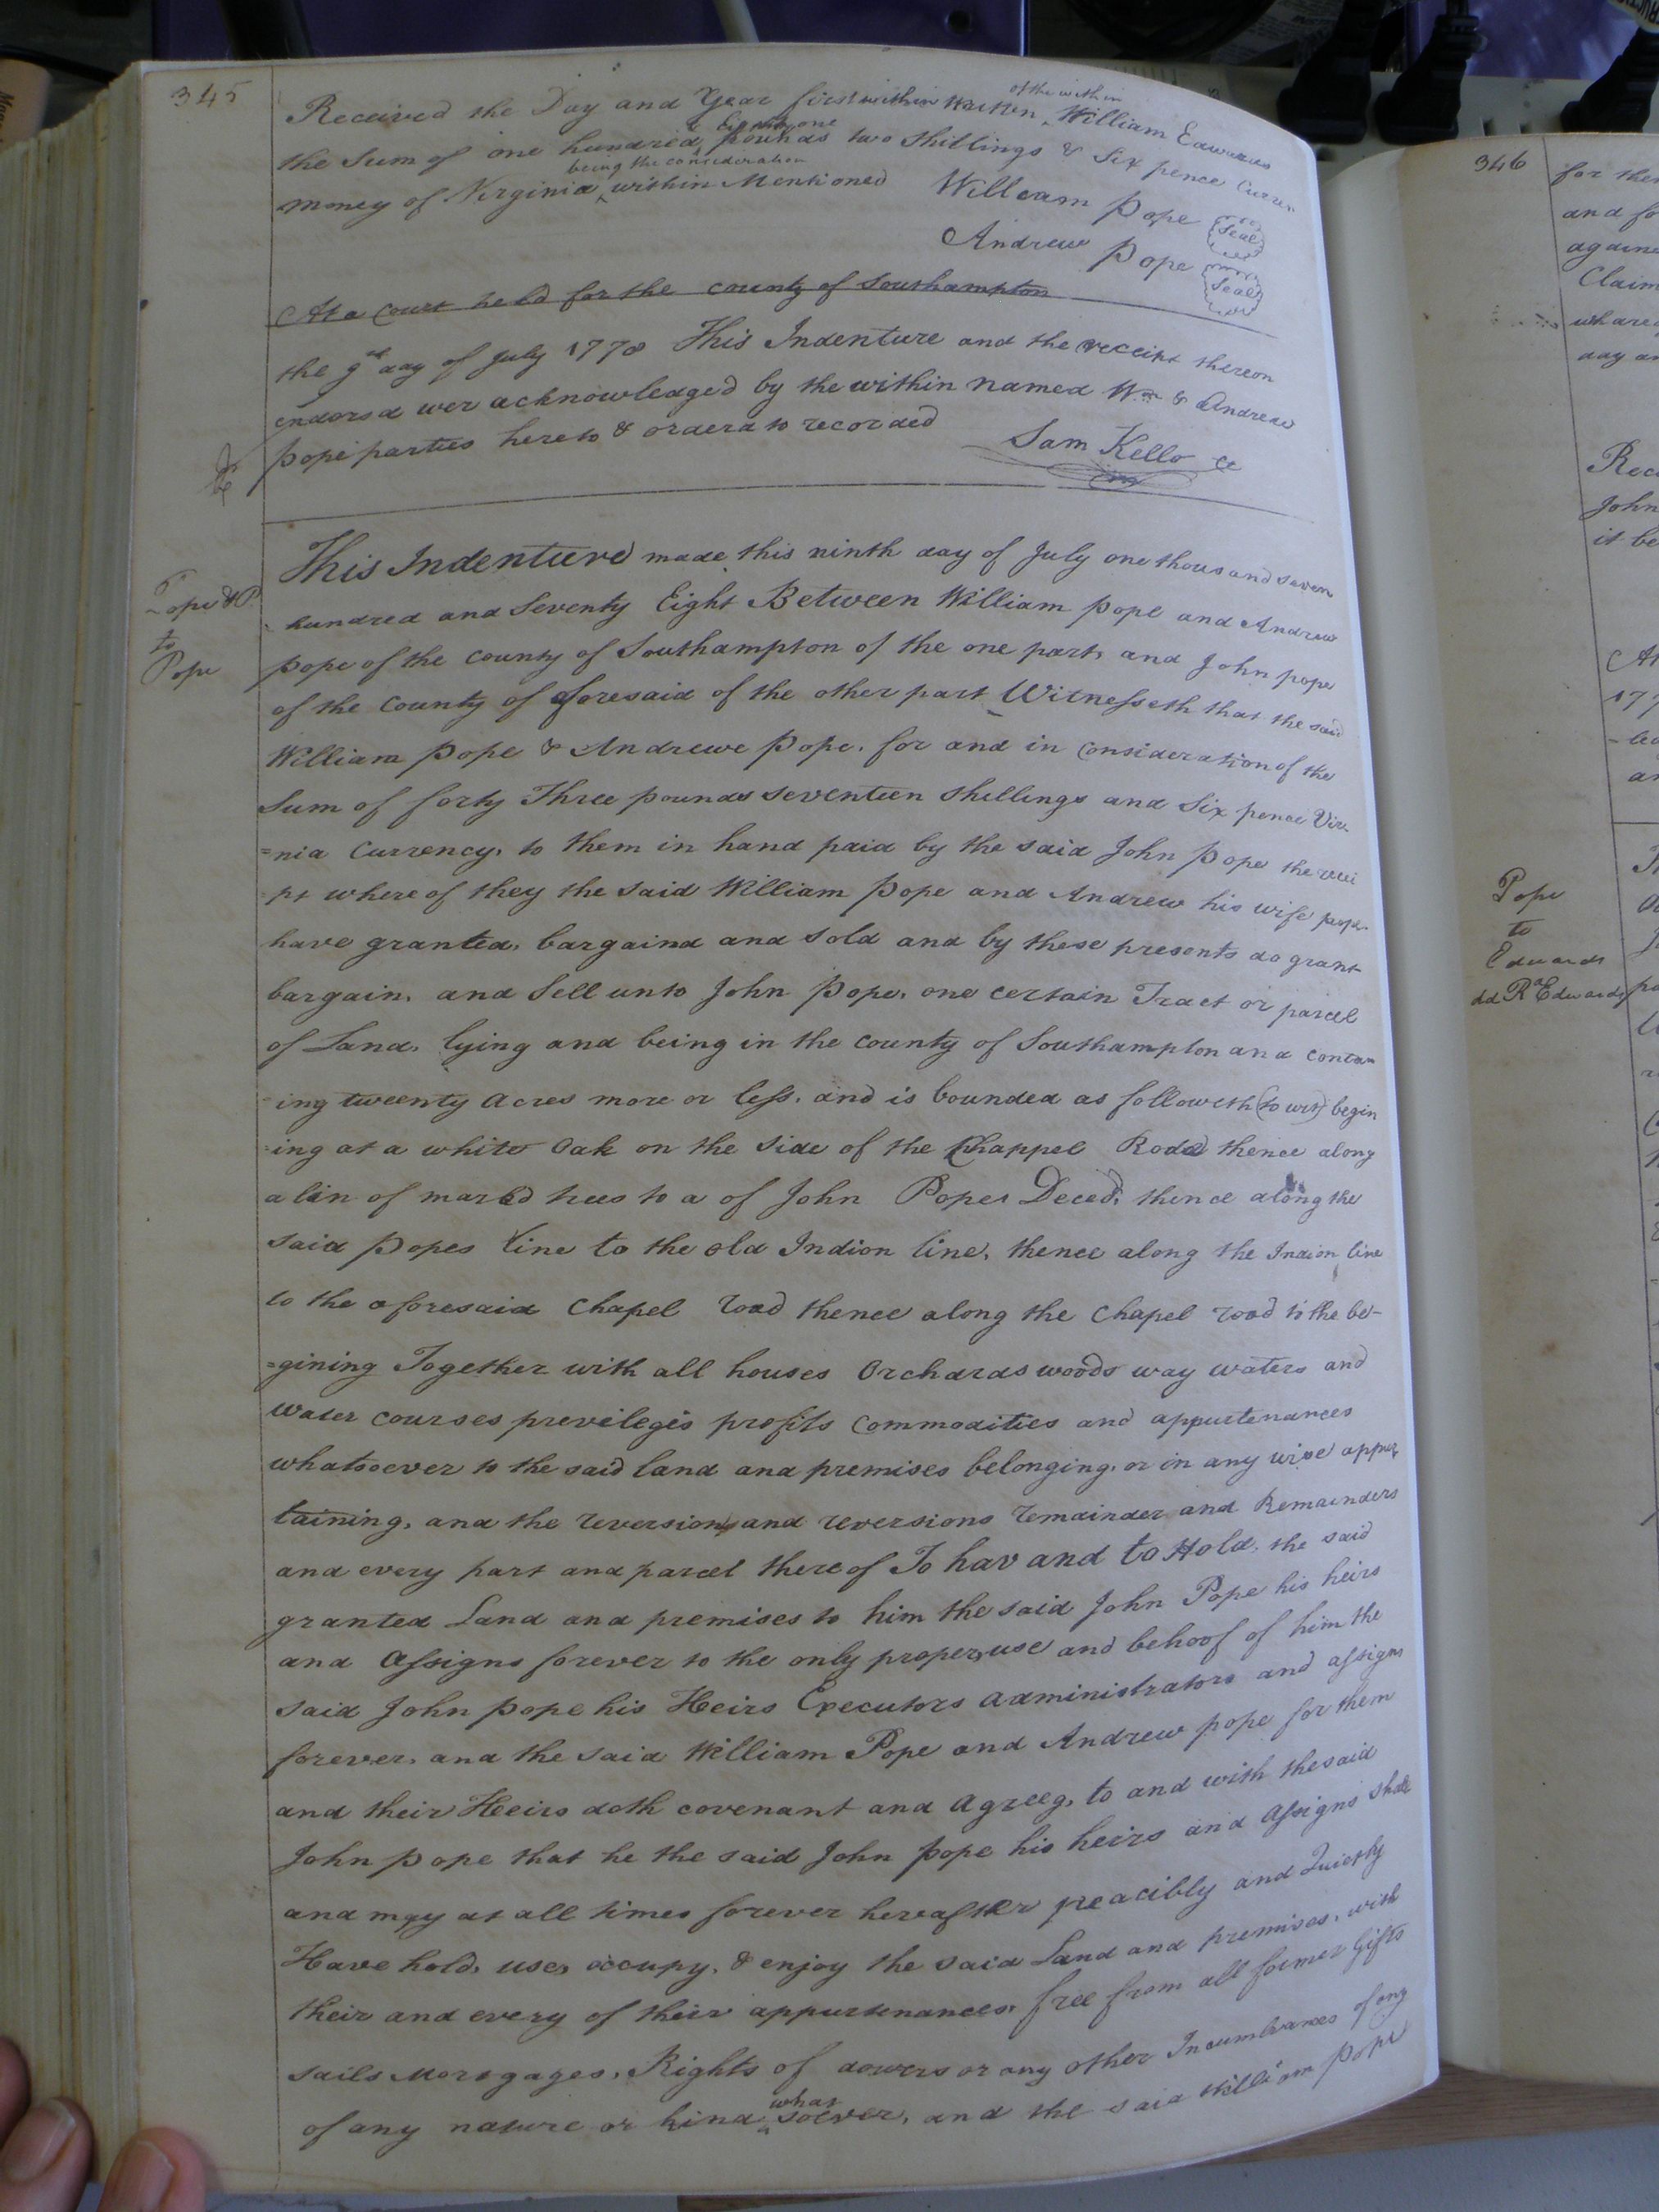 345
Received the Day and Year first within Written ^of the within William Edwards
the Sum of one hundred ^& Eighty one pounds two Shillings & Six pence Curren
money of Virginia ^being the consideration within Mentioned
William Pope Seal
Andrew Pope Seal
At a Court held for the county of Southampton
the 9th day of July 1778 This Indenture and the receipt thereon
endorsd wer acknowledged by the within named Wm & Andrew
pope parties hereto & orderd to recorded
Sam Kello cc
Pope & P.
to
Pope
This Indenture made this ninth day of July one thousand seven
hundred and Seventy Eight Between William pope and Andrew
pope of the county of Southampton of the one part, and John pope
of the County of aforesaid of the other part Witnesseth that the said
William pope & Andrewe pope, for and in consideration of the
Sum of forty Three pounds seventeen shillings and Six pence Vir-
=nia Currency, to them in hand paid by the said John Pope the recei
-pt where of they the said William pope and Andrew his wife pope
have granted, bargaind and sold and by these presents do grant
bargain, and Sell unto John Pope, one certain Tract or parcel
of Land, lying and being in the county of Southampton and contan
-ing tweenty acres more or less, and is bounded as followeth (to wit) begin
-ing at a white Oak on the side of the Chappel Rodd thence along
a lin of markd trees to a of John Popes Deced, thence along the
said popes line to the old Indion line, thence along the Indion line
to the aforesaid Chapel road thence along the Chapel road to the be-
=gining Together with all houses Orchards woods way waters and
water courses previleges profits Commodities and appurtenances
whatsoever to the said land and premises belonging, or in any wise appur
taining, and the reversion and reversions remainder and Remainders
and every part and parcel there of To hav and to Hold, the said
granted Land and premises to him the said John Pope his heirs
and Assigns forever to the only proper use and behoof of him the
said John pope his Heirs Executors administrators and assigns
forever, and the said William Pope and Andrew pope for them
and their Heeirs doth covenant and agreeg, to and with the said
John pope that he the said John Pope his heirs and Assigns shall
and may at all times forever hereafter peacibly and Quietly
Have hold, use, occupy, & enjoy the said Land and premises, with
their and every of their appurtenances, free from all former Gifts
sails Morsgages, Rights of dowers or any other Incumbrances of any
of any nature or kind ^what soever, and the said William Pope
346
for the
and fo
again
Claim
whare
day an
Rec
John
it be
At
177
-led
an
Pope
to
Edwards
dd Rd Edwards